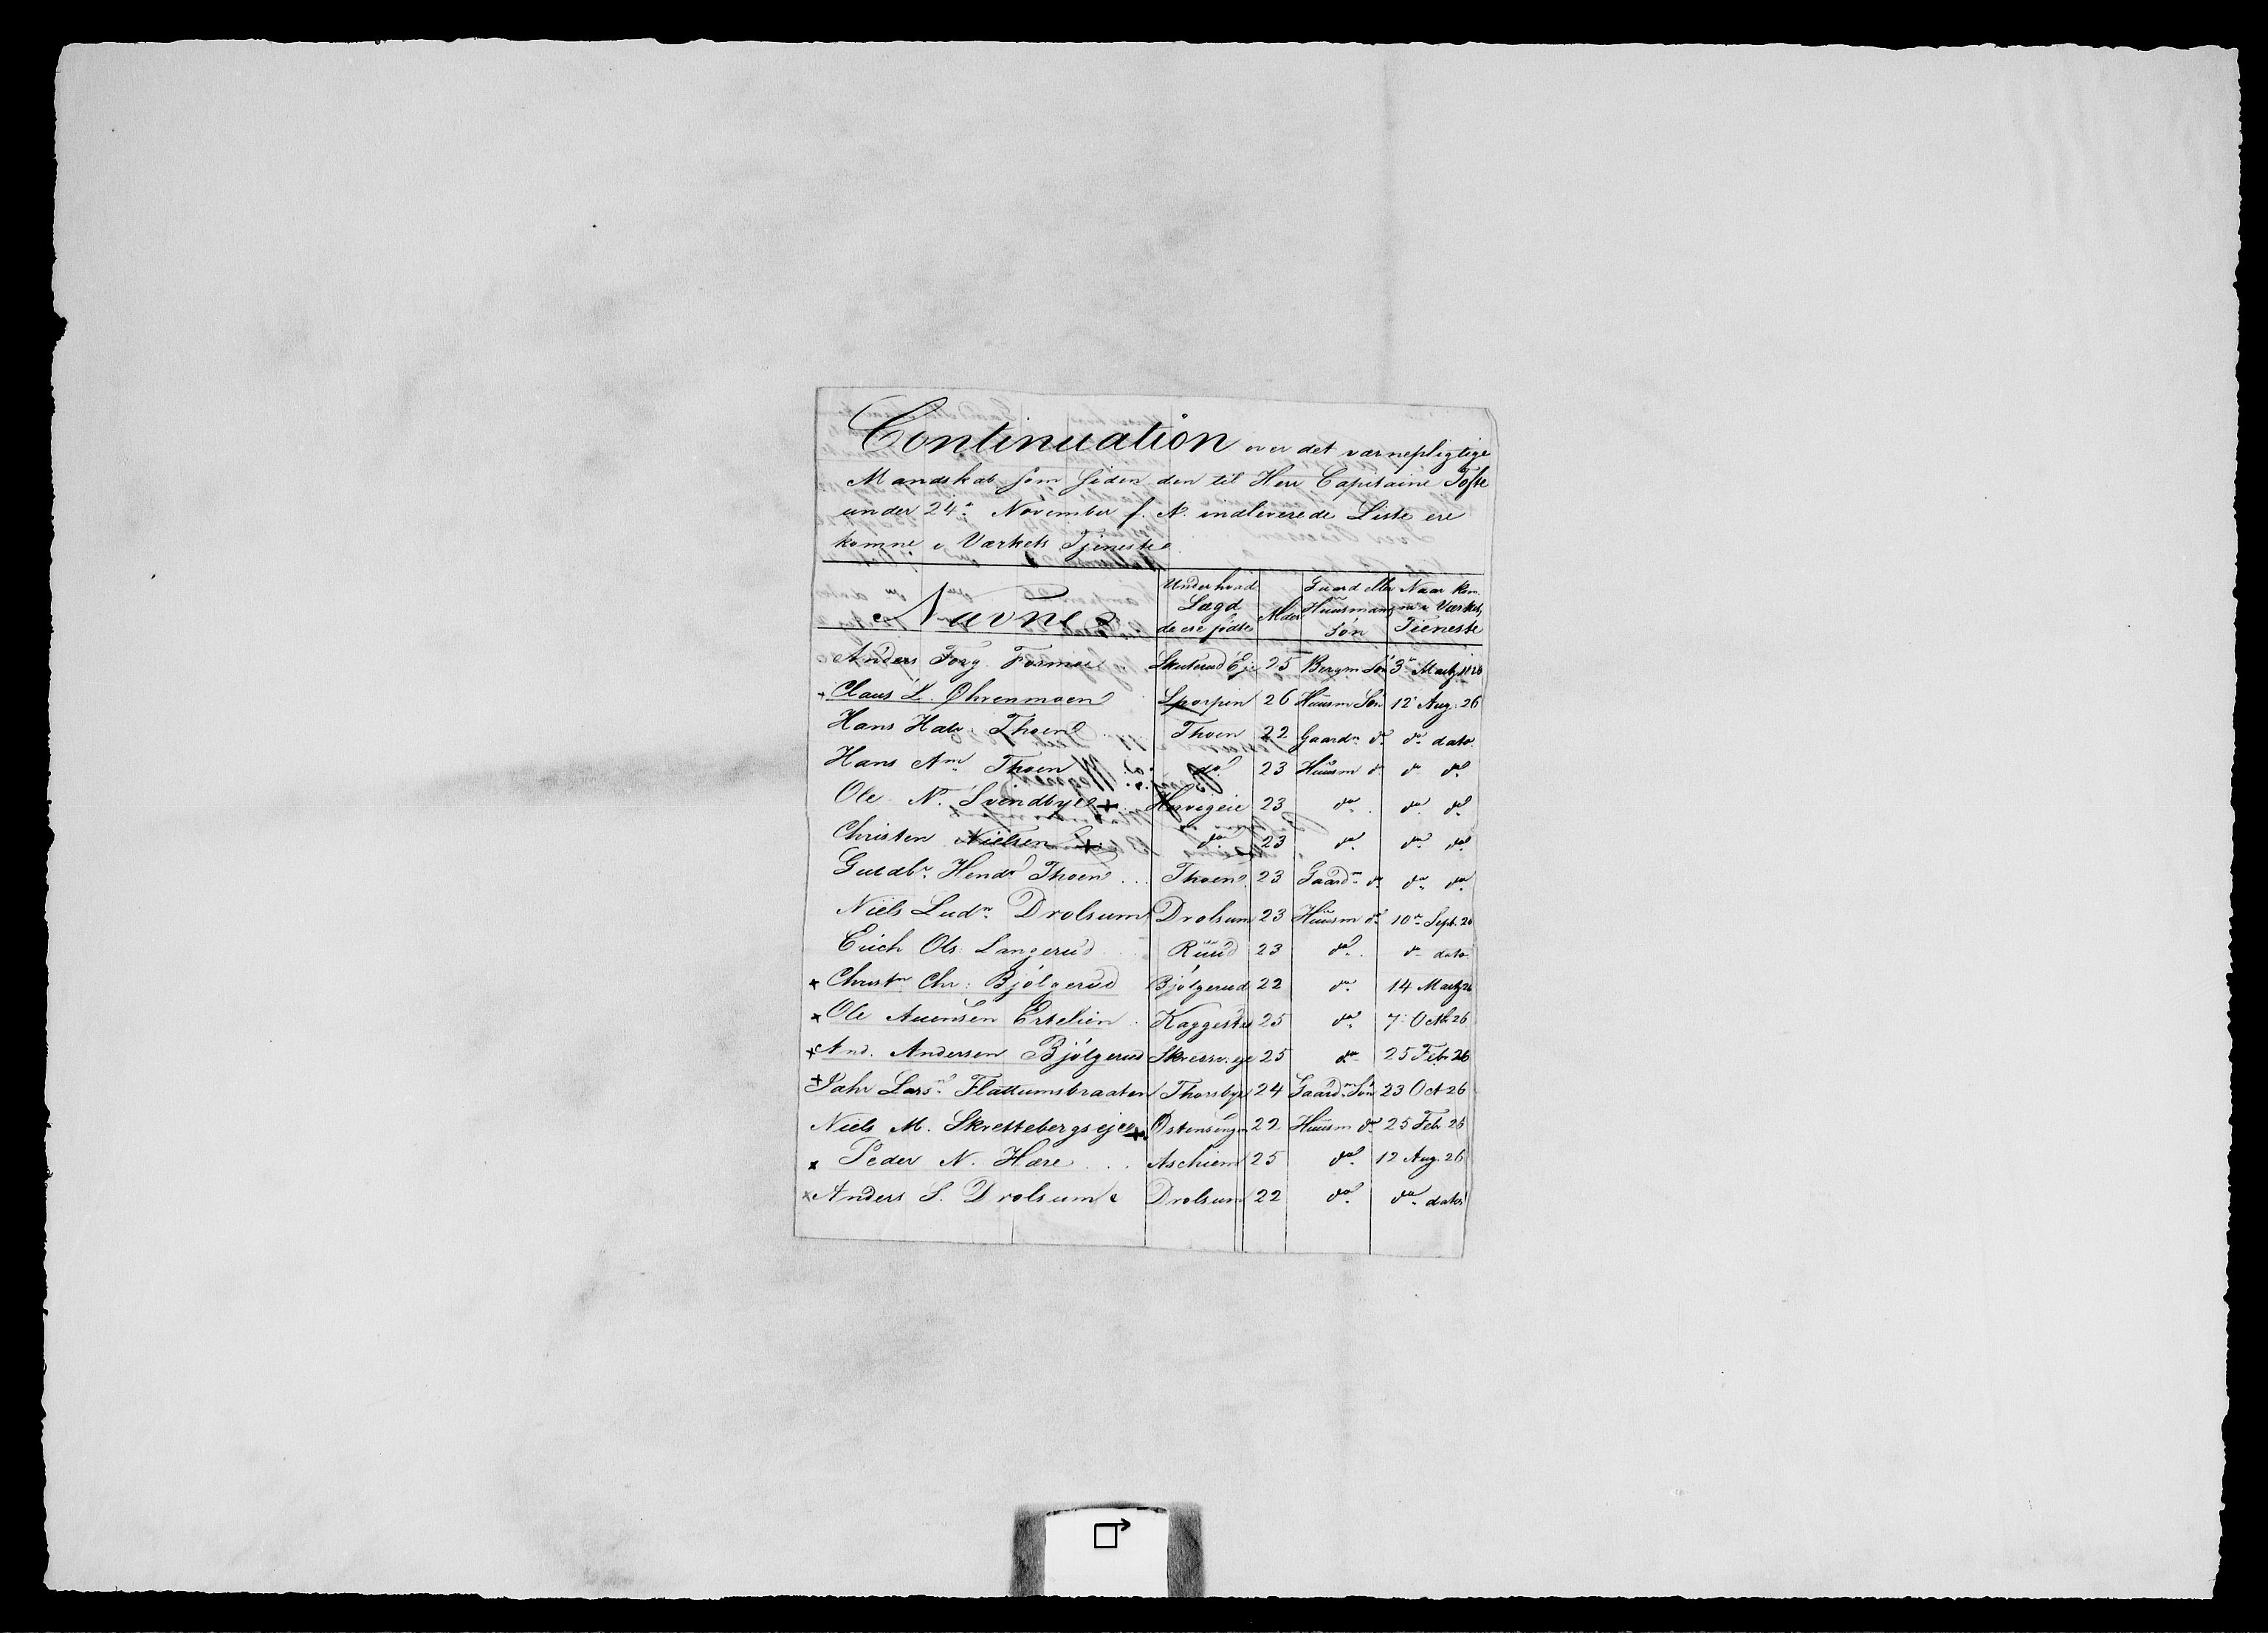 Continuation over det værnepligtige
Mandskab som siden den til Herr Capitaine Tofte
under 24de November f. A. indleverede Liste ere
komne i Værkets Tjeneste
Navne | Under hvad Lægd de ere fødte | Alder | Gaard eller Huusmans Søn | Naar kom- ne i Værkets Tieneste
Anders Forg. Formoe | Skuterud Eje | 25 | Bergm Søn | 3de Martz 1826
+ Claus L. Øhrenmoen | | 26 | Huusm Søn | 12 Aug. 26
Hans Halv. Thoen | Thoen | 22 | Gaardm do | do dato
Hans Am Thoen | do | 23 | Huusm do | do do
Ole N. Svindbye + | Horvegeie | 23 | do | do do
Christen Nielsen + | do | 23 | do | do do
Guldbr. Hendr Thoen | Thoen | 23 | Gaardm do | do do
Niels Ludn. Drolsum | Drolsum | 23 | Huusm do | 10de Sept. 26
Erich Ols. Langerud | Ruud | 23 | do | do dato
+ Christn Chr: Bjølgerud | Bjølgerud | 22 | do | 14 Martz 26
+ Ole Auensen Ertelien | Kaggestad | 25 | do | 7 Octb. 26
+ And. Andersen Bjølgerud | | 25 | do | 25 Feb. 26
+ Pahr Larsn Flattumsbraaten | Thorsbye | 24 | Gaardm Søn | 23 Oct 26
Niels M. Skrettebergseje + | Østensengen | 22 | Huusm do | 25 Feb 26
+ Peder N. Hære | Aschiem | 25 | do | 12 Aug. 26
+ Anders S. Drolsum | Drolsum | 22 | do | do dato